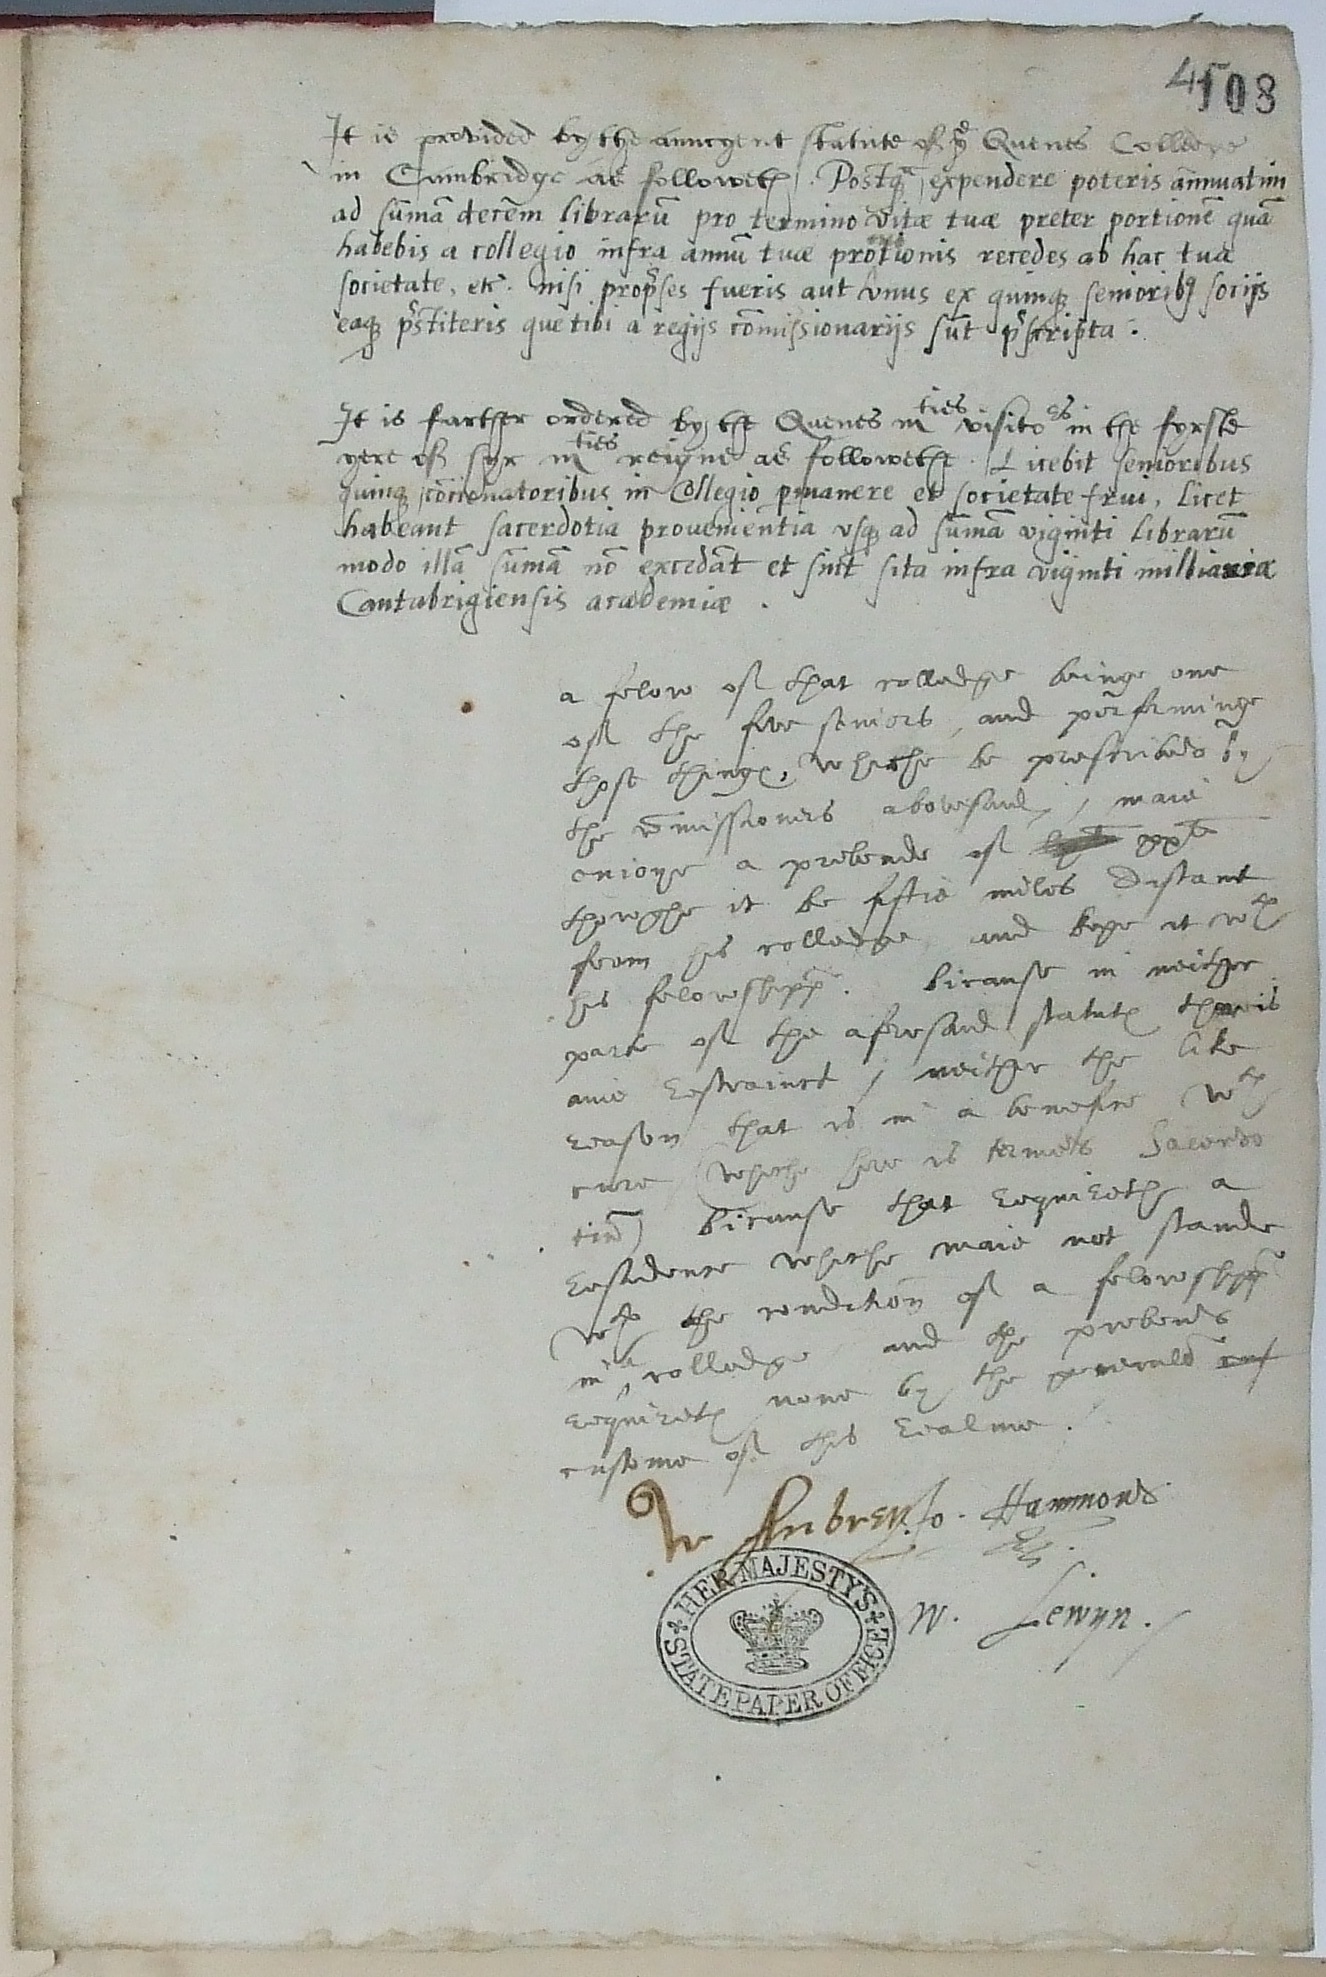 45
108
It is provided by the auncyent statute of yͤ Quenes Colledge
in Cambridge as followeth. Postqᷓ expendere poteris annuatim
ad sum̄a decem̄ librarū pro termino vitæ tuæ preter portionē quā
habebis a collegio infra annū tuæ protionis recedes ab hac tua
societate, etc. nisi propr̃ses fueris aut vnus ex quinqȝ senioribȝ socijs
eaqȝ pr̃stiteris que tibi a regijs cōmissionarijs sūt pr̃scripta.
It is farther ordered by the Quenes mᵗⁱᵉˢ visitoʳˢ in the fyrste
yere of hyr mᵗⁱᵉˢ reigne as followethe. Licebit senioribus
quinqȝ concionatoribus in Collegio pmanere et societate frui, licet
habeant sacerdotia provenientia vsqȝ ad sum̄ā viginti librarū
modo illā sum̄ā nō excedāt et sint sita infra viginti milliaria
Cantabrigiensis academiæ.
a felow of that colledge beinge one
of the five seniors, and performinge
those things, whiche be prescribed by
the cōmissioners abovesaid, maie
enioye a prebende of xxˡⁱ
thowghe it be fiftie miles distant
from his colledge, and kepe it wᵗʰ
his felowshipp. bicause in neither
parte of the aforesaid statute there is
anie restrainct, neither the like
reason that is in a benefice wᵗʰ
cure (whiche here is termed Sacerdo
tiū) bicause that requireth a
residence whiche maie not stande
wᵗʰ the condition of a felowshipp
in a colledge, and the prebende
requireth none by the generall
custome of this realme.
W Aubrey. Jo. Hammond.
W. Lewyn.
HER MAJESTY'S
STATE PAPER OFFICE